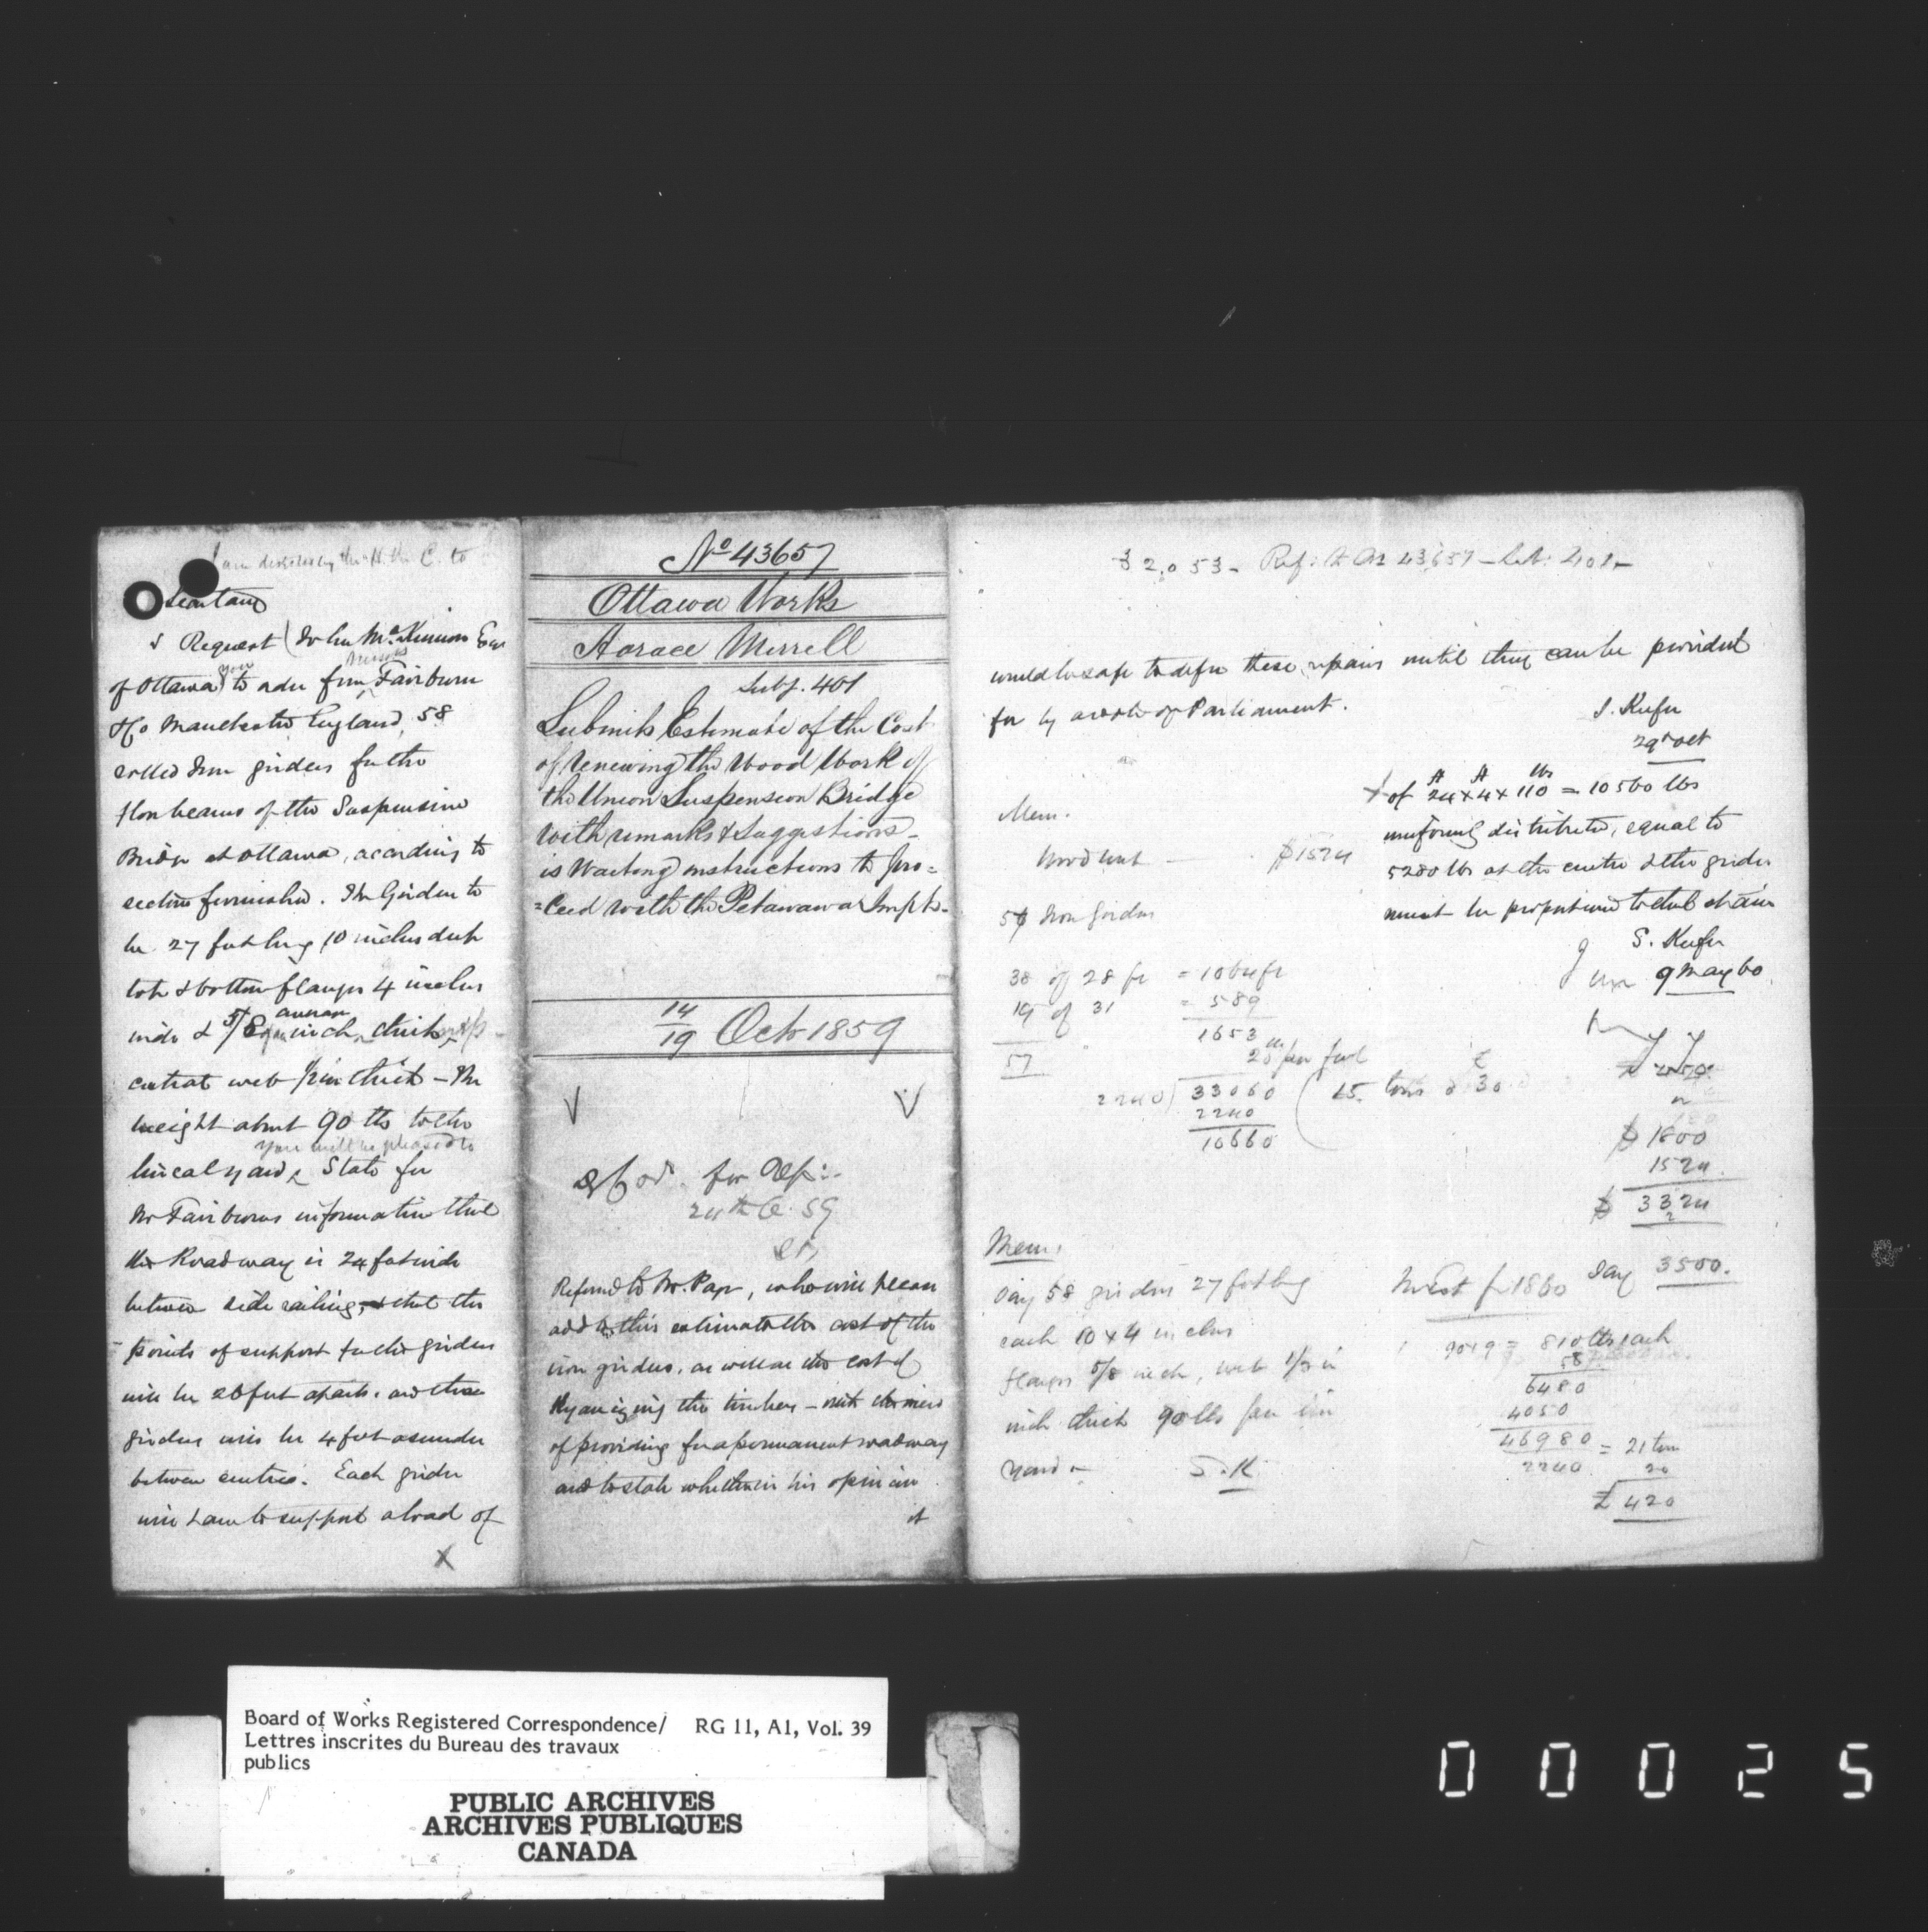 I am directed by the H. the C. to
Secretary
Request (John McKinnon Esq
of Ottawa) you to order from Messrs Fairburn
& Co Manchester England, 58
rolled Iron girders for the
floor beams of the Suspension
Bridge at Ottawa, according to
section furnished. The Girders to
be 27 feet long 10 inches deep
top & bottom flanges 4 inches
wide & 5/8 inch average thick
central web 1/2 in thick – The
weight about 90 lbs to the
lineal yard You will be pleased to State for
Mr Fairburns information that
the Roadway is 24 feet wide
between side railings, & that the
points of support to the girders
will be 26 feet apart. and these
girders will be 4 feet asunder
between centres. Each girder
will have to support a load of
X
No 43657
Ottawa Works
Horace Merrell
Subj. 401
Submits Estimate of the Cost
of renewing the Wood Work of
the Union Suspension Bridge
with remarks & Suggestions –
is Waiting instructions to pro=
=ceed with the Petawawa Impts.
14/19 Octr 1859
for Rep:
24th O. 59
Referred to Mr. Page, who will please
add to this estimate the cost of the
iron girders, as well as the cost of
Kyanizing the timbers – with the view
of providing for a permanent roadway
and to state whether in his opinion
it
32,053 – Ref: to No 43657 – Sub: 401 –
would be safe to defer these repairs until they can be provided
for by a vote of Parliament.
S. Keefer
29th Oct
X of 24 ft x 4 ft x 110 lbs = 10560 lbs
uniformly distributed, equal to
5280 lbs at the centre & the girder
must be proportioned to that strain
S. Keefer
9 May 60
Mem.
Wood work — $1524
57 Iron Girders
38 of 28 ft = 1064 ft
19 of 31 = 589
57 1653
20 lbs per foot
2240) 33060 ( 15 tons @ £30
2240
10660
£ 450
or
$ 1800
1524
$ 3324
Mem:
Say 58 girders 27 feet long
each 10 x 4 inches
flanges 5/8 inch, web 1/2 in
inch thick 90 lbs per lin
yard –
S. K.
for 1860 Say 3500.
90 x 9 = 810 lbs each
58
6480
4050
46980 = 21 tons
2240 20
£ 420
Board of Works Registered Correspondence/ RG 11, A1, Vol. 39
Lettres inscrites du Bureau des travaux
publics
PUBLIC ARCHIVES
ARCHIVES PUBLIQUES
CANADA
00025